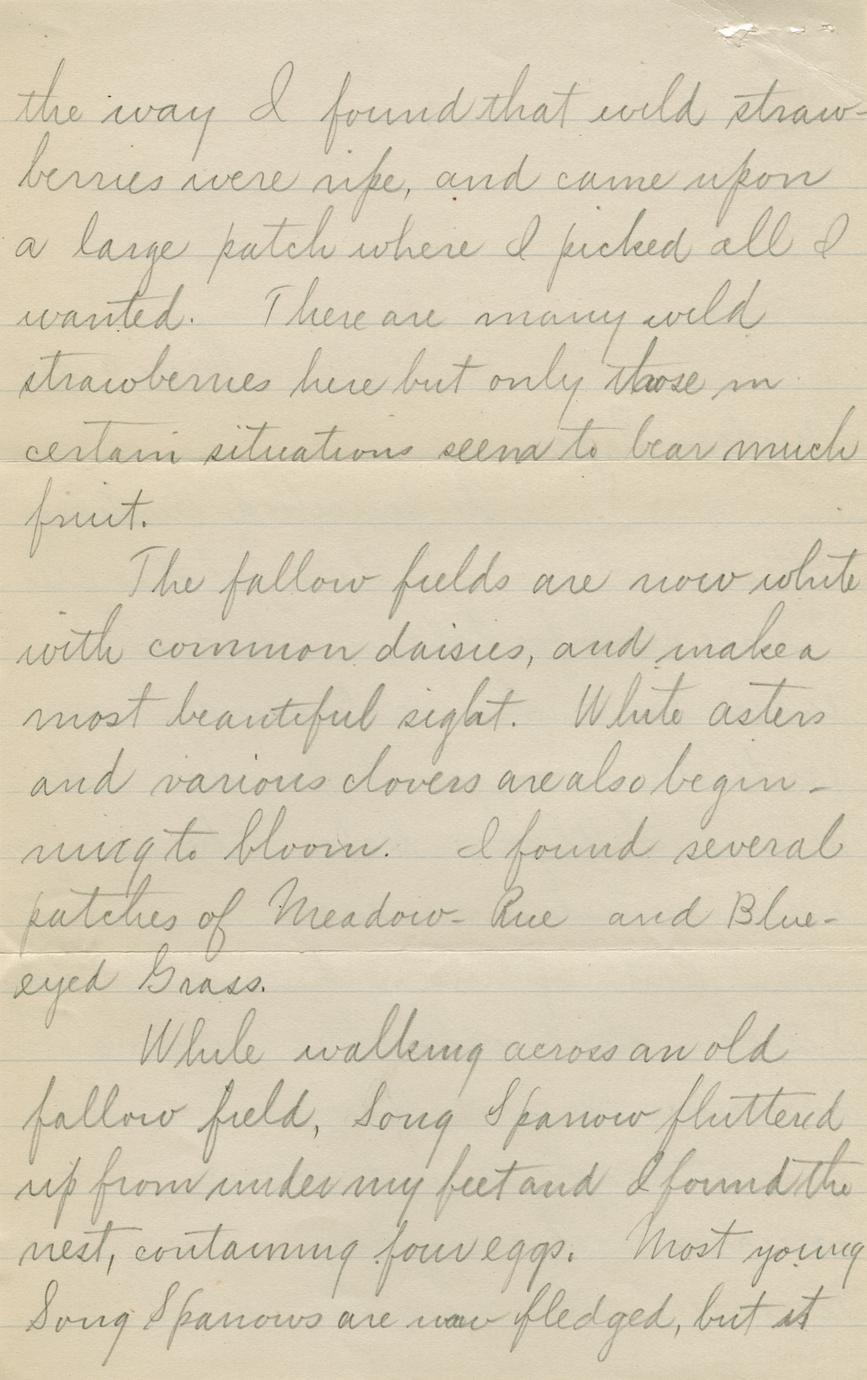 the way I found that wild straw-
berries were ripe, and came upon
a large patch where I picked all I
wanted. There are many wild
strawberries here but only those in
certain situations seem to bear much
fruit.
The fallow fields are now white
with common daisies, and make a
most beautiful sight. White asters
and various clovers are also begin-
ning to bloom. I found several
patches of Meadow-Rue and Blue-
eyed Grass.
While walking across an old
fallow field, Song Sparrow fluttered
up from under my feet and I found the
nest, containing four eggs. Most young
Song Sparrows are now fledged, but it